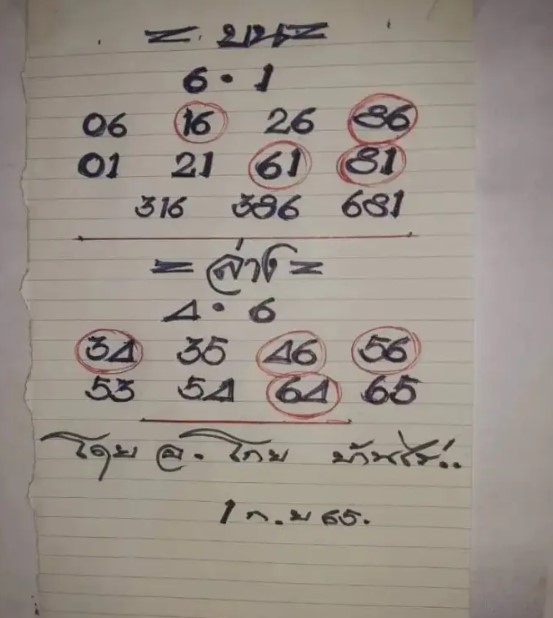 = บน =
6 · 1
06 16 26 86
01 21 61 81
316 386 681
= ล่าง =
4 · 6
34 35 46 56
53 54 64 65
โดย อ. โทย บ้านไผ่..
1 ก.ย 65.